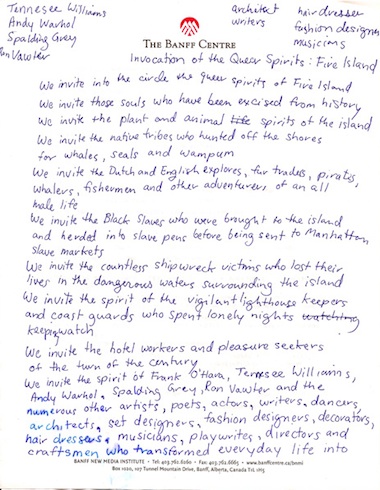 Tennesee Williams
Andy Warhol
Spalding Grey
Ron Vawter
architect
writers
hairdresser
fashion designe
musicians
THE BANFF CENTRE
Invocation of the Queer Spirits: Fire Island
We invite into the circle the queer spirits of Fire Island
We invite those souls who have been excised from history
We invite the plant and animal life spirits of the island
We invite the native tribes who hunted off the shores
for whales, seals and wampum
We invite the Dutch and English explores, fur trades, pirates,
whalers, fishermen and other adventurers of an all
male life
We invite the Black Slaves who were brought to the island
and herded into slave pens before being sent to Manhattan
slave markets
We invite the countless shipwreck victims who lost their
lives in the dangerous waters surrounding the island
We invite the spirit of the vigilant lighthouse keepers
and coast guards who spent lonely nights watching
keeping watch
We invite the hotel workers and pleasure seekers
of the turn of the century
We invite the spirit of Frank O'Hara, Tennesee Williams,
Andy Warhol, Spalding Grey, Ron Vawter and the
numerous other artists, poets, actors, writers, dancers,
architects, set designers, fashion designers, decorators,
hair dressers, musicians, playwrites, directors and
craftsmen who transformed everyday life into
BANFF NEW MEDIA INSTITUTE • Tel: 403.762.6260 • Fax: 403.762.6665 • www.banffcentre.ca/bnmi
Box 1020, 107 Tunnel Mountain Drive, Banff, Alberta, Canada T1L 1H5